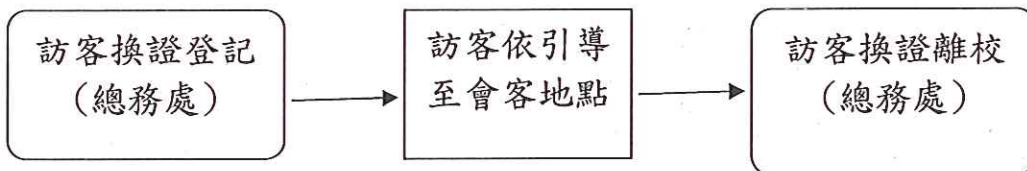 訪客換證登記
(總務處)
訪客依引導
至會客地點
訪客換證離校
(總務處)